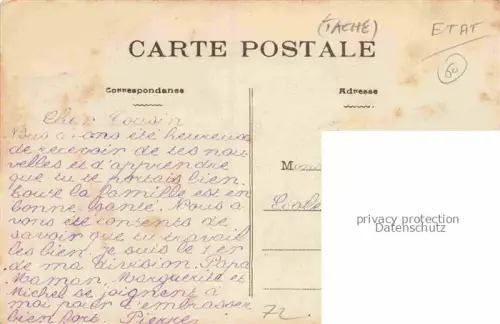 (TACHE)
ETAT
60
CARTE POSTALE
Correspondance
Adresse
Cher Cousin
Nous avons été heureuse
de recevoir de tes nou
velles et d'apprendre
que tu te portais bien.
Toute la famille est en
bonne santé. Nous a
vons été contents de
savoir que tu travail
les bien. Je suis le 1er
de ma division. Papa
Maman, Marguerite et
Michel se joignent à
moi pour t'embrasser
bien fort. Pierre
Mons
Ecole
privacy protection
Datenschutz
72